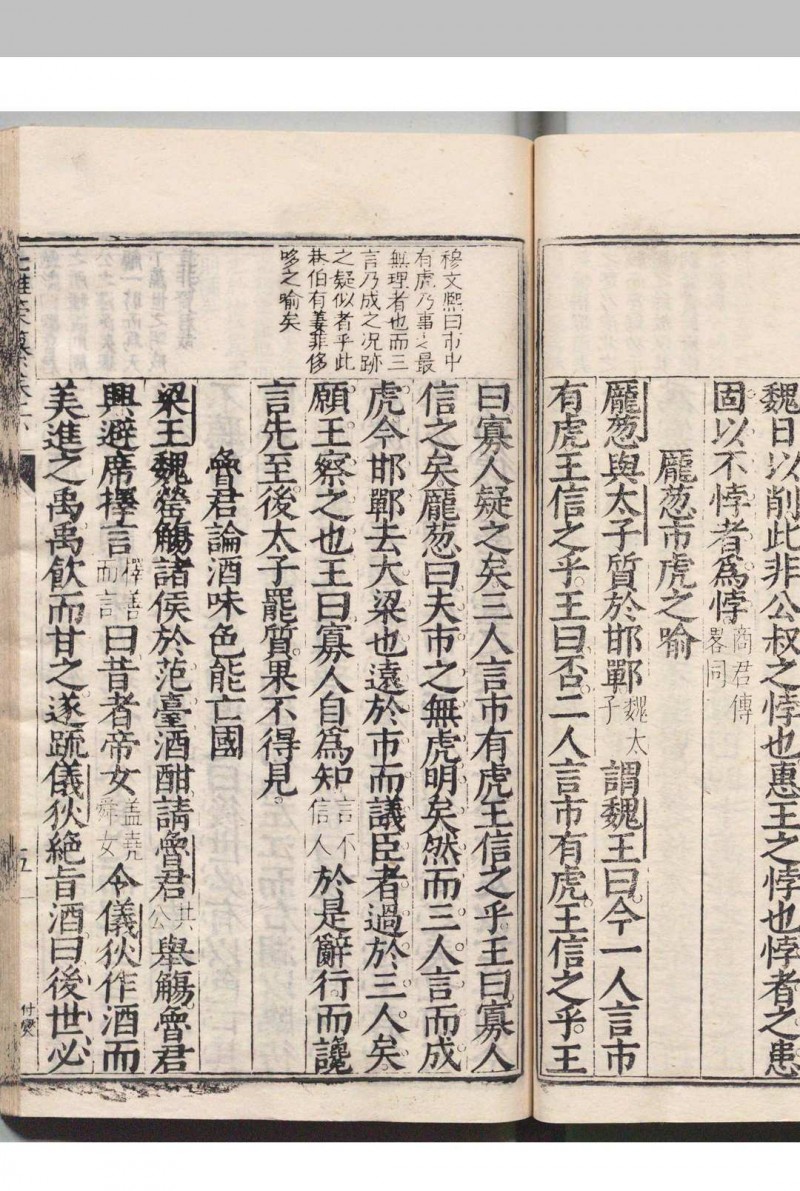 魏日以削此非公叔之悖也惠王之悖也悖者之患
固以不悖者爲悖商君傳畧同
龐葱市虎之喻
龐葱與太子質於邯鄲魏太子謂魏王曰今一人言市
有虎王信之乎王曰否二人言市有虎王信之乎王
穆文熙曰市中
有虎乃事之最
無理者也而三
言乃成之况跡
之疑似者乎此
巷伯有萋菲侈
哆之喻矣
曰寡人疑之矣三人言市有虎王信之乎王曰寡人
信之矣龐葱曰夫市之無虎明矣然而三人言而成
虎今邯鄲去大梁也遠於市而議臣者過於三人矣
願王察之也王曰寡人自爲知言不信人於是辭行而讒
言先至後太子罷質果不得見
魯君論酒味色能亡國
梁王魏罃觴諸侯於范臺酒酣請魯君共公舉觴魯君
興避席擇言擇善而言曰昔者帝女盖堯舜女令儀狄作酒而
美進之禹禹飲而甘之遂䟽儀狄絶旨酒曰後世必
五